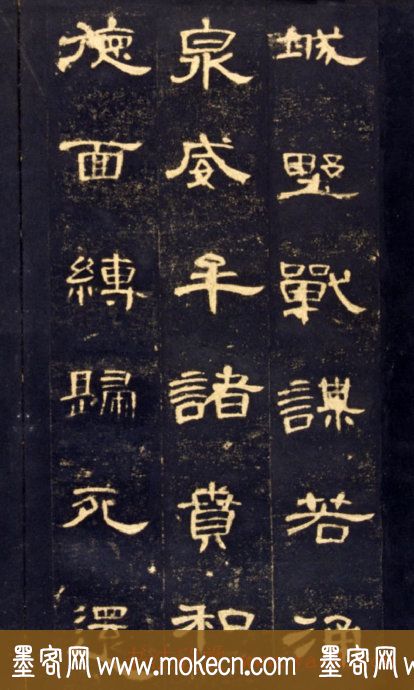 城野戰謀若涌
泉威牟諸賁和
德面縛歸死還
墨客网 www.mokecn.com 墨客网